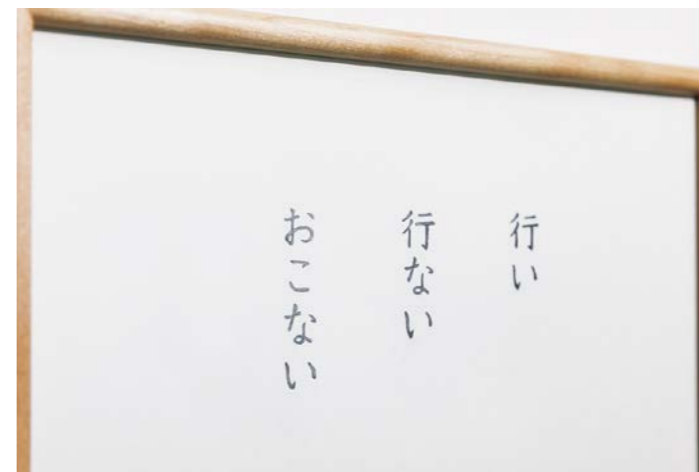 行い
行ない
おこない